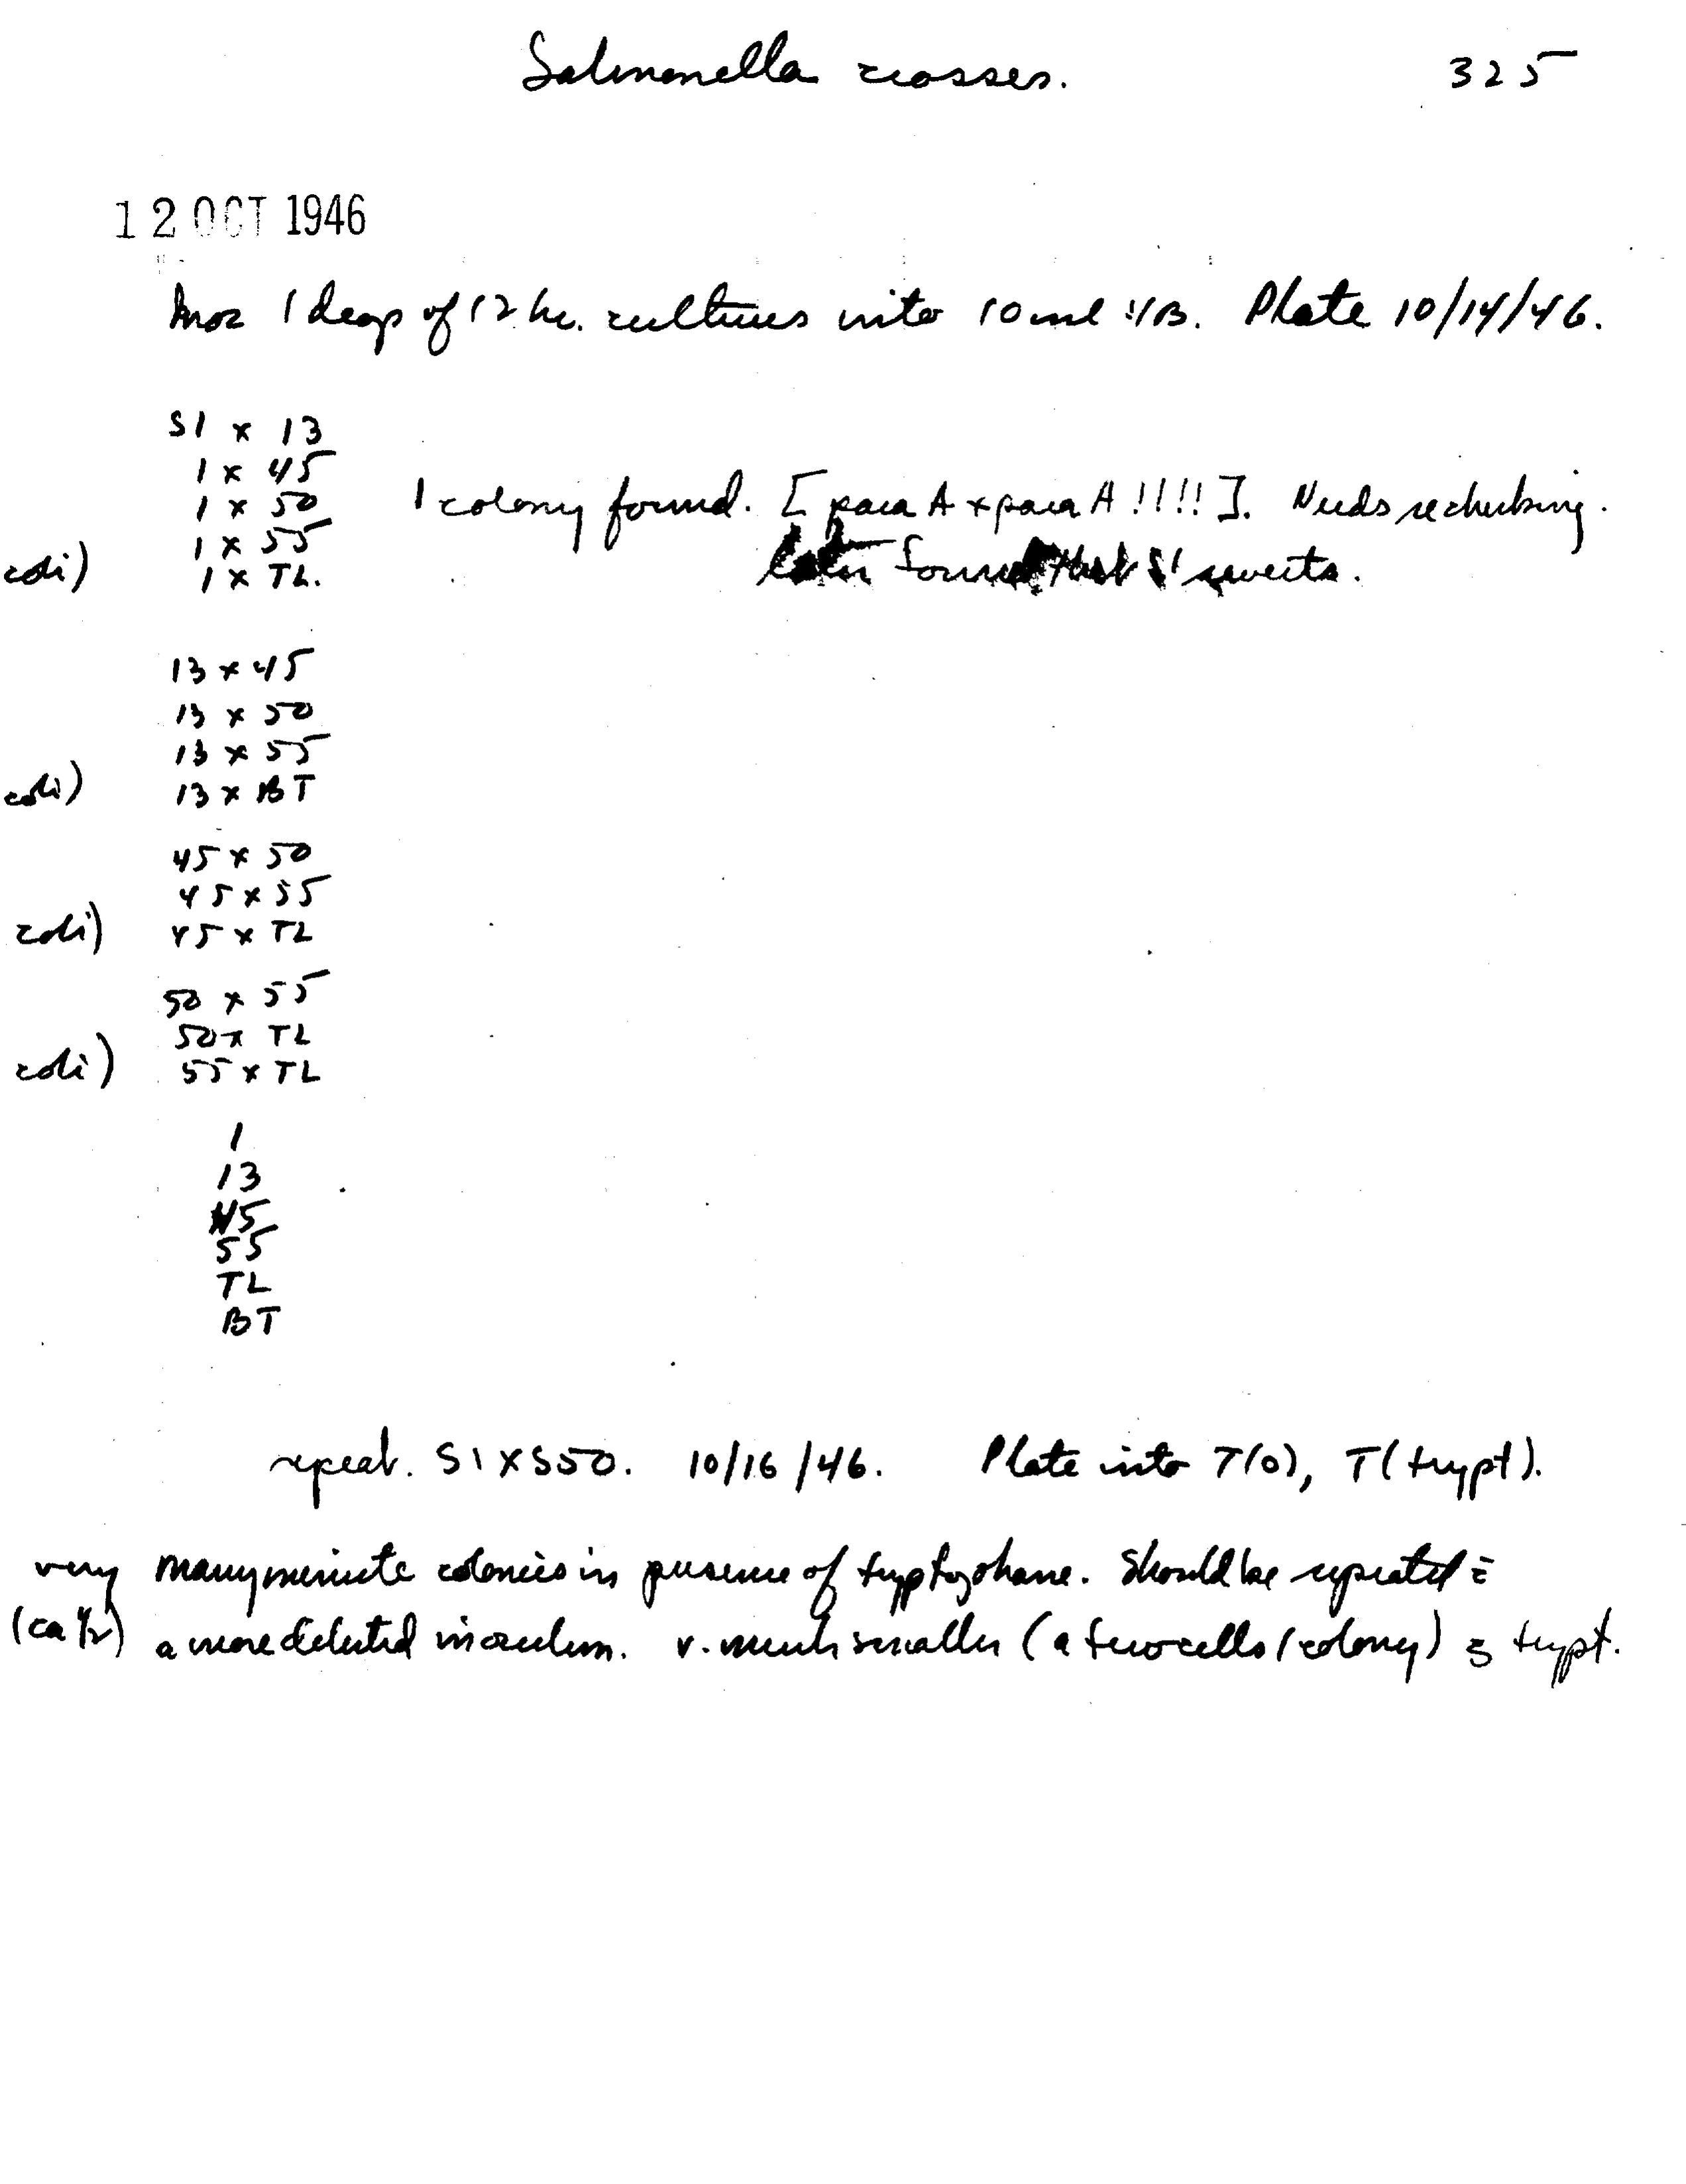 Salmonella crosses. 325
12 OCT 1946
Inoc 1 drop of 12 hr. cultures into 10 ml YB. Plate 10/14/46.
S1 x 13
1 x 45
1 x 50 1 colony found. [para A x para A !!!!]. Needs rechecking.
1 x 55
coli) 1 x TL. Later found that S1 reverts.
13 x 45
13 x 50
13 x 55
coli) 13 x BT
45 x 50
45 x 55
coli) 45 x TL
50 x 55
50 x TL
coli) 55 x TL
1
13
45
55
TL
BT
repeat. S1 x S50. 10/16/46. Plate into T(0), T(trypt).
very many minute colonies in presence of tryptophane. Should be repeated c̄
(ca ½) a more diluted inoculum. v. much smaller (a few cells/colony) c̄ trypt.